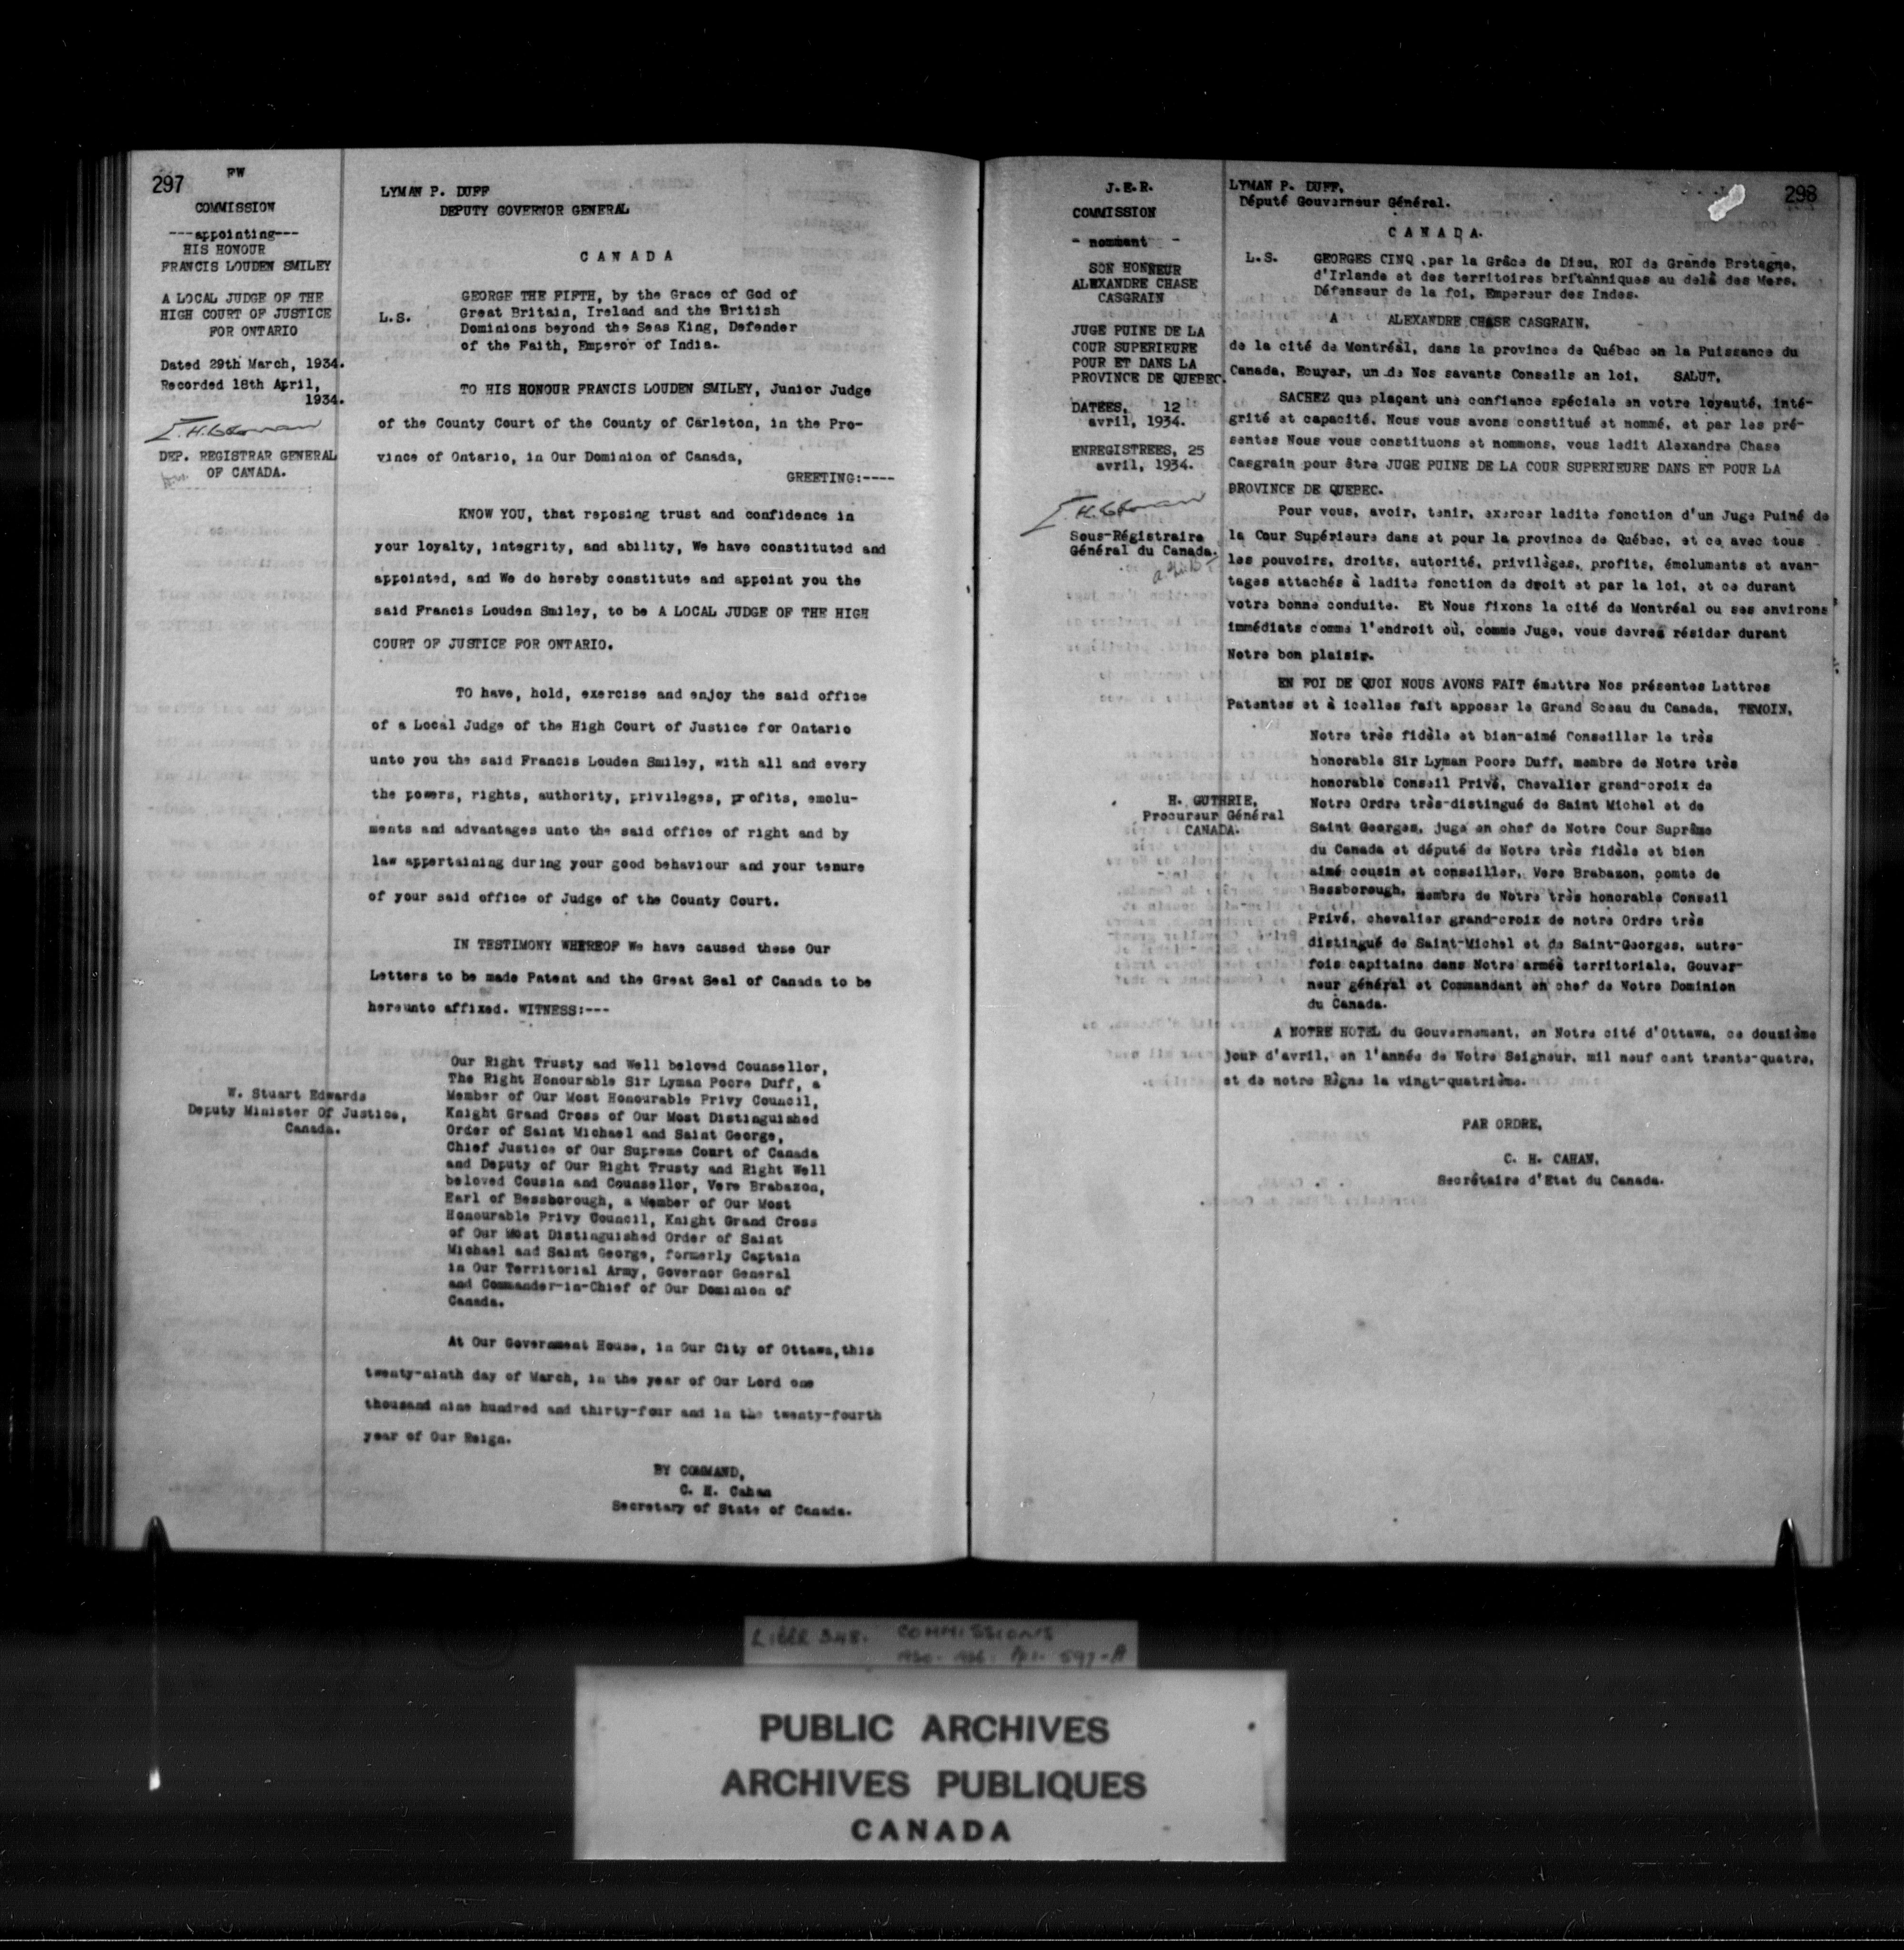 297
FW
COMMISSION
---appointing---
HIS HONOUR
FRANCIS LOUDEN SMILEY
A LOCAL JUDGE OF THE
HIGH COURT OF JUSTICE
FOR ONTARIO
Dated 29th March, 1934.
Recorded 18th April,
1934.
DEP. REGISTRAR GENERAL
OF CANADA.
LYMAN P. DUFF
DEPUTY GOVERNOR GENERAL
C A N A D A
L.S.
GEORGE THE FIFTH, by the Grace of God of
Great Britain, Ireland and the British
Dominions beyond the Seas King, Defender
of the Faith, Emperor of India.
TO HIS HONOUR FRANCIS LOUDEN SMILEY, Junior Judge
of the County Court of the County of Carleton, in the Pro-
vince of Ontario, in Our Dominion of Canada,
GREETING:----
KNOW YOU, that reposing trust and confidence in
your loyalty, integrity, and ability, We have constituted and
appointed, and We do hereby constitute and appoint you the
said Francis Louden Smiley, to be A LOCAL JUDGE OF THE HIGH
COURT OF JUSTICE FOR ONTARIO.
TO have, hold, exercise and enjoy the said office
of a Local Judge of the High Court of Justice for Ontario
unto you the said Francis Louden Smiley, with all and every
the powers, rights, authority, privileges, profits, emolu-
ments and advantages unto the said office of right and by
law appertaining during your good behaviour and your tenure
of your said office of Judge of the County Court.
IN TESTIMONY WHEREOF We have caused these Our
Letters to be made Patent and the Great Seal of Canada to be
hereunto affixed. WITNESS:---
W. Stuart Edwards
Deputy Minister Of Justice,
Canada.
Our Right Trusty and Well beloved Counsellor,
The Right Honourable Sir Lyman Poore Duff, a
Member of Our Most Honourable Privy Council,
Knight Grand Cross of Our Most Distinguished
Order of Saint Michael and Saint George,
Chief Justice of Our Supreme Court of Canada
and Deputy of Our Right Trusty and Right Well
beloved Cousin and Counsellor, Vere Brabazon,
Earl of Bessborough, a Member of Our Most
Honourable Privy Council, Knight Grand Cross
of Our Most Distinguished Order of Saint
Michael and Saint George, formerly Captain
in Our Territorial Army, Governor General
and Commander-in-Chief of Our Dominion of
Canada.
At Our Government House, in Our City of Ottawa,this
twenty-ninth day of March, in the year of Our Lord one
thousand nine hundred and thirty-four and in the twenty-fourth
year of Our Reign.
BY COMMAND,
C. H. Cahan
Secretary of State of Canada.
298
J.E.R.
COMMISSION
- nommant -
SON HONNEUR
ALEXANDRE CHASE
CASGRAIN
JUGE PUINE DE LA
COUR SUPERIEURE
POUR ET DANS LA
PROVINCE DE QUEBEC.
DATEES, 12
avril, 1934.
ENREGISTREES, 25
avril, 1934.
Sous-Régistraire
Général du Canada.
LYMAN P. DUFF,
Député Gouverneur Général.
C A N A D A.
L.S.
GEORGES CINQ ,par la Grâce de Dieu, ROI de Grande Bretagne,
d'Irlande et des territoires britanniques au delà des Mers,
Défenseur de la foi, Empereur des Indes.
A ALEXANDRE CHASE CASGRAIN,
de la cité de Montréal, dans la province de Québec en la Puissance du
Canada, Ecuyer, un de Nos savants Conseils en loi, SALUT,
SACHEZ que plaçant une confiance spéciale en votre loyauté, inté-
grité et capacité, Nous vous avons constitué et nommé, et par les pré-
sentes Nous vous constituons et nommons, vous ledit Alexandre Chase
Casgrain pour être JUGE PUINE DE LA COUR SUPERIEURE DANS ET POUR LA
PROVINCE DE QUEBEC.
Pour vous, avoir, tenir, exercer ladite fonction d'un Juge Puiné de
la Cour Supérieure dans et pour la province de Québec, et ce avec tous
les pouvoirs, droits, autorité, privilèges, profits, émoluments et avan-
tages attachés à ladite fonction de droit et par la loi, et ce durant
votre bonne conduite. Et Nous fixons la cité de Montréal ou ses environs
immédiats comme l'endroit où, comme Juge, vous devrez résider durant
Notre bon plaisir.
EN FOI DE QUOI NOUS AVONS FAIT émettre Nos présentes Lettres
Patentes et à icelles fait apposer le Grand Sceau du Canada, TEMOIN,
H. GUTHRIE,
Procureur Général
CANADA.
Notre très fidèle et bien-aimé Conseiller le très
honorable Sir Lyman Poore Duff, membre de Notre très
honorable Conseil Privé, Chevalier grand-croix de
Notre Ordre très-distingué de Saint Michel et de
Saint Georges, juge en chef de Notre Cour Suprême
du Canada et député de Notre très fidèle et bien
aimé cousin et conseiller, Vere Brabazon, comte de
Bessborough, membre de Notre très honorable Conseil
Privé, chevalier grand-croix de notre Ordre très
distingué de Saint-Michel et de Saint-Georges, autre-
fois capitaine dans Notre armée territoriale, Gouver-
neur général et Commandant en chef de Notre Dominion
du Canada.
A NOTRE HOTEL du Gouvernement, en Notre cité d'Ottawa, ce douzième
jour d'avril, en l'année de Notre Seigneur, mil neuf cent trente-quatre,
et de notre Règne la vingt-quatrième.
PAR ORDRE,
C. H. CAHAN,
Secrétaire d'Etat du Canada.
LIBER 348. COMMISSIONS
597-A
PUBLIC ARCHIVES
ARCHIVES PUBLIQUES
CANADA